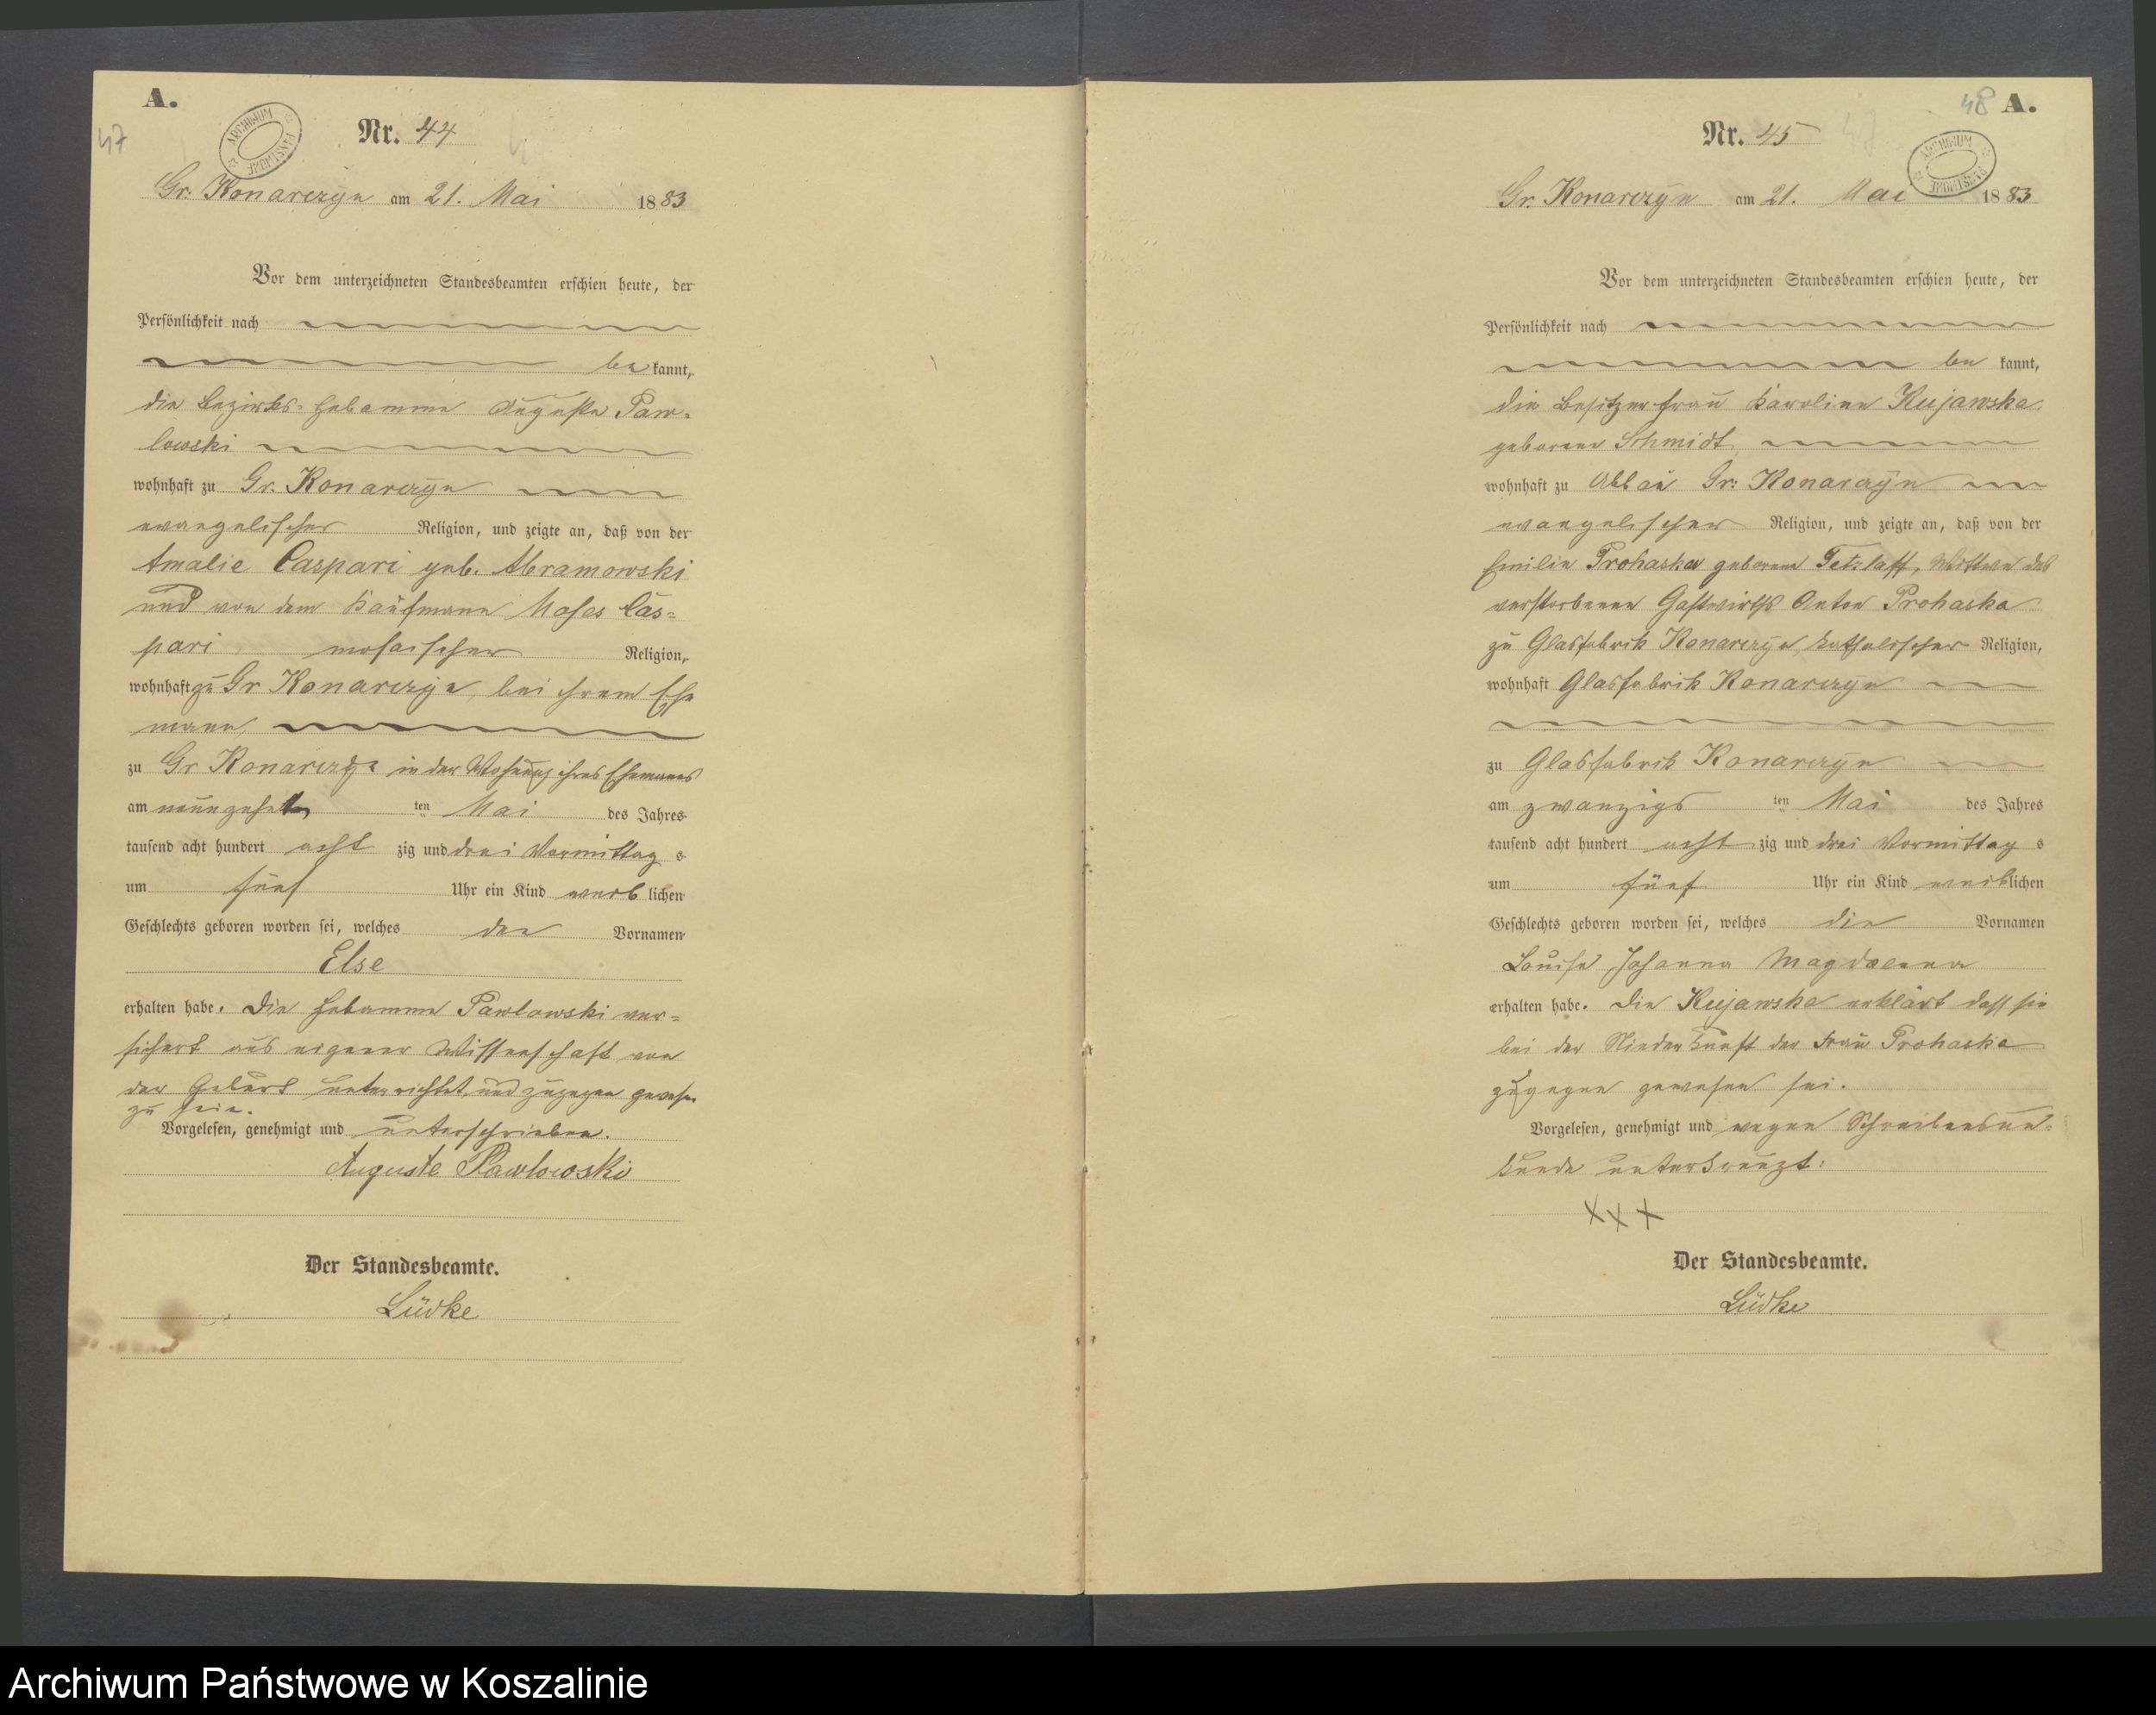 A.
47
ARCHIWUM PAŃSTWOWE
Nr. 44
Gr. Konarczyn am 21. Mai 1883
Vor dem unterzeichneten Standesbeamten erschien heute, der
Persönlichkeit nach
be kannt,
die Bezirks-Hebamme Auguste Paw=
lowski
wohnhaft zu Gr. Konarczyn
evangelischer Religion, und zeigte an, daß von der
Amalie Caspari geb. Abramowski
und von dem Kaufmann Moses Cas=
pari mosaischer Religion,
wohnhaft zu Gr Konarczyn, bei ihrem Ehe
mann,
zu Gr Konarczyn in der Wohnung ihres Ehemannes
am neunzehnten ten Mai des Jahres
tausend acht hundert acht zig und drei Vormittag s
um fünf Uhr ein Kind weib lichen
Geschlechts geboren worden sei, welches den Vornamen
Else
erhalten habe. Die Hebamme Pawlowski ver=
sichert aus eigener Wissenschaft von
der Geburt unterrichtet und zugegen gewesen
zu sein.
Vorgelesen, genehmigt und unterschrieben.
Auguste Pawlowski
Der Standesbeamte.
Lüdke
48 A.
47
ARCHIWUM PAŃSTWOWE
Nr. 45
Gr. Konarczyn am 21. Mai 1883
Vor dem unterzeichneten Standesbeamten erschien heute, der
Persönlichkeit nach
be kannt,
die Besitzerfrau Karoline Kujawska
geborene Schmidt,
wohnhaft zu Abbau Gr: Konarczyn
evangelischer Religion, und zeigte an, daß von der
Emilie Prohaska geborene Tetzlaff, Wittwe des
verstorbenen Gastwirths Anton Prohaska
zu Glasfabrik Konarczyn, katholischer Religion,
wohnhaft Glasfabrik Konarczyn
zu Glasfabrik Konarczyn
am zwanzigs ten Mai des Jahres
tausend acht hundert acht zig und drei Vormittag s
um fünf Uhr ein Kind weiblichen
Geschlechts geboren worden sei, welches die Vornamen
Louise Johanna Magdalena
erhalten habe. Die Kujawska erklärt daß sie
bei der Niederkunft der Frau Prohaska
zugegen gewesen sei.
Vorgelesen, genehmigt und wegen Schreibensun=
kunde unterkreuzt:
XXX
Der Standesbeamte.
Lüdke
Archiwum Państwowe w Koszalinie